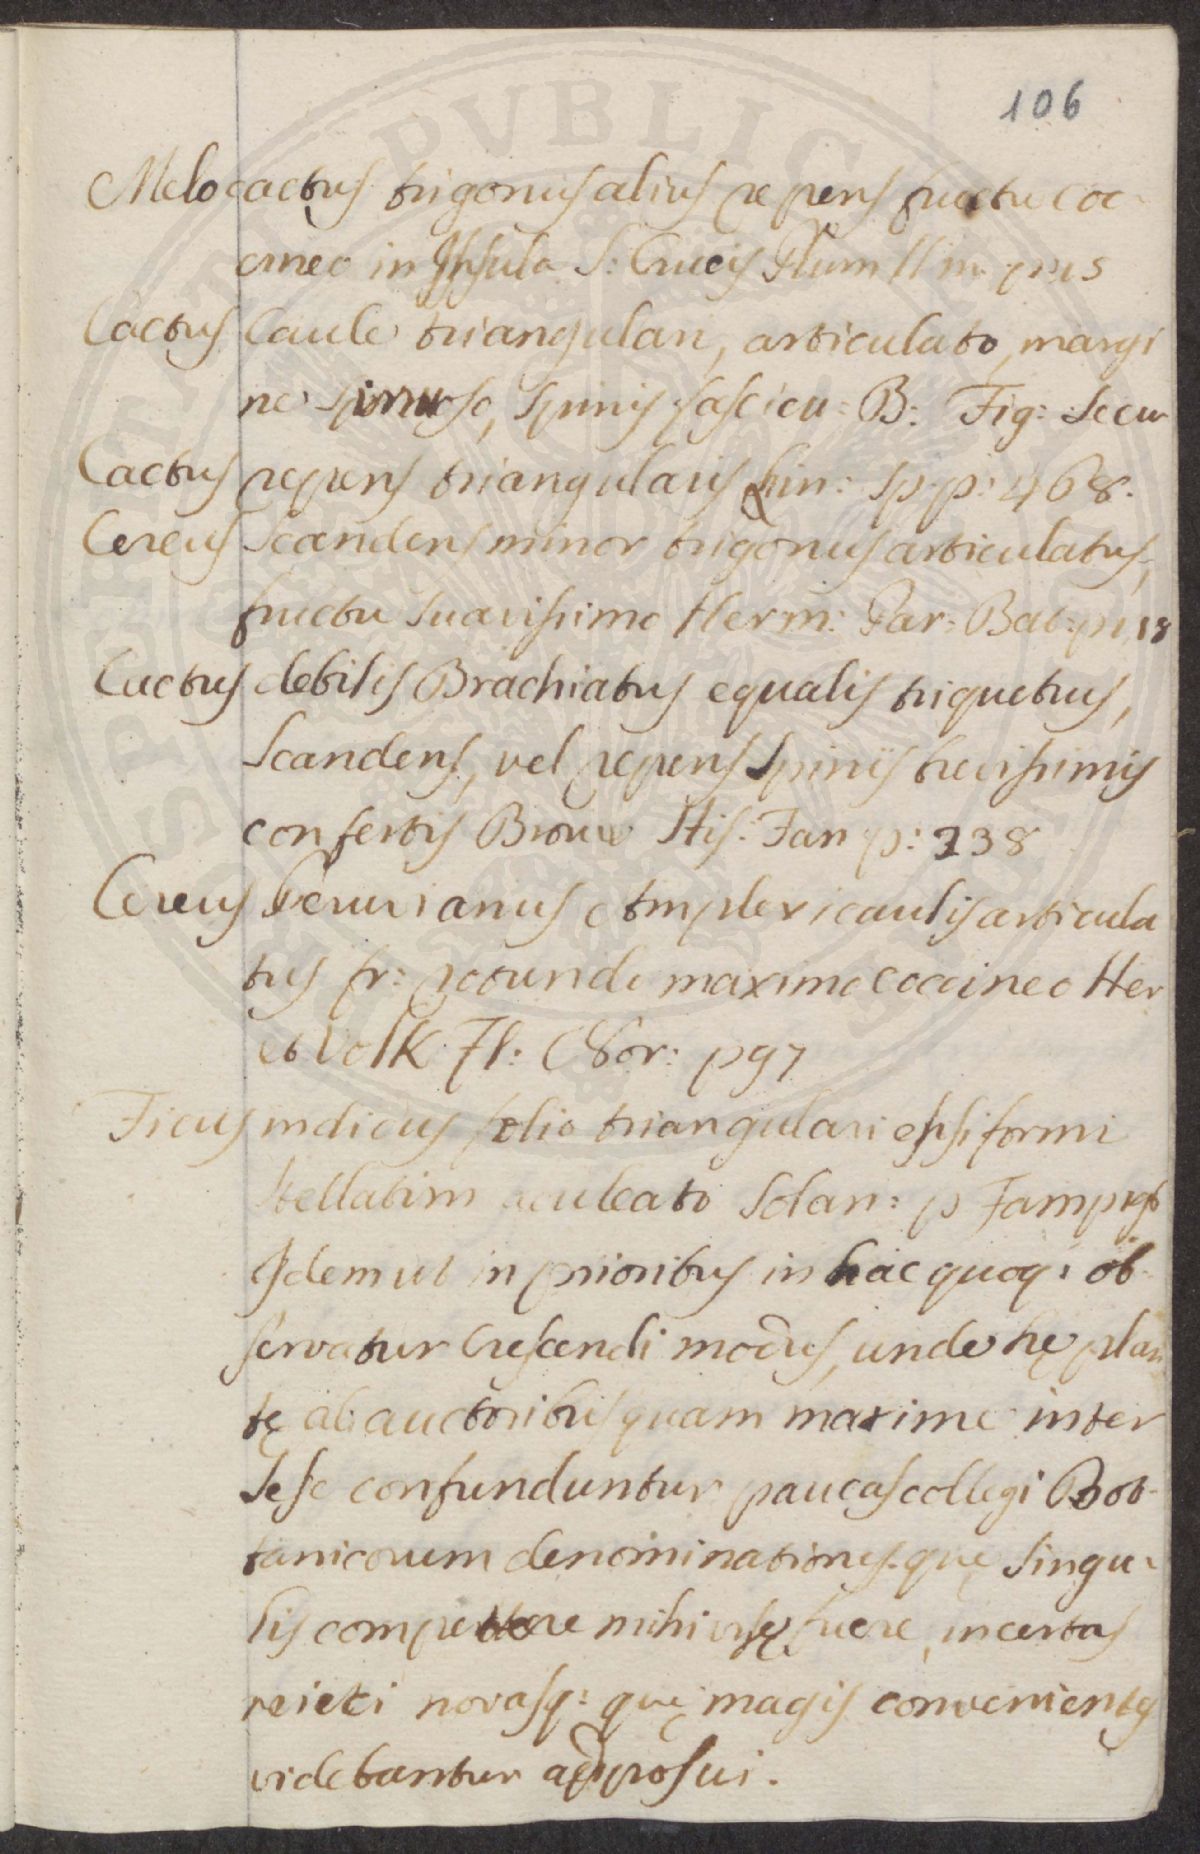 106
Melocactus trigonus alius repens fructu coc-
cineo in Insula S: Crucis Plum
Cactus Caule triangulari, articulato, margi
ne spinoso, spinis fascicu: B: Fig: Secu
Cactus repens triangularis Lin: Sp: p: 468.
Cereus Scandens minor trigonus articulatus,
fructu suavissimo Herm: Par: Bat: p: 118
Cactus debilis Brachiatus equalis triquetrus,
Scandens, vel repens Spinis brevissimis
confertis Brow His: Jam p: 238
Cereus Peruvianus et mplexicaulis articula
tus fr: rotundo maximo coccineo Her
et Volk Fl: Nor: p 97
Ficus indicus folio triangulari ensiformi
stellatim aculeato Sloan: p Jam
Idem ut in prioribus in hac quoq: ob-
servatur Crescendi modus, unde hę plan
tę ab auctoribus quam maxime inter
sese confunduntur paucas collegi Bot-
tanicorum denominationes quę singu-
lis competere mihi visę fuere, incertas
reieci novasq: quę magis convenientes
videbantur adposui.